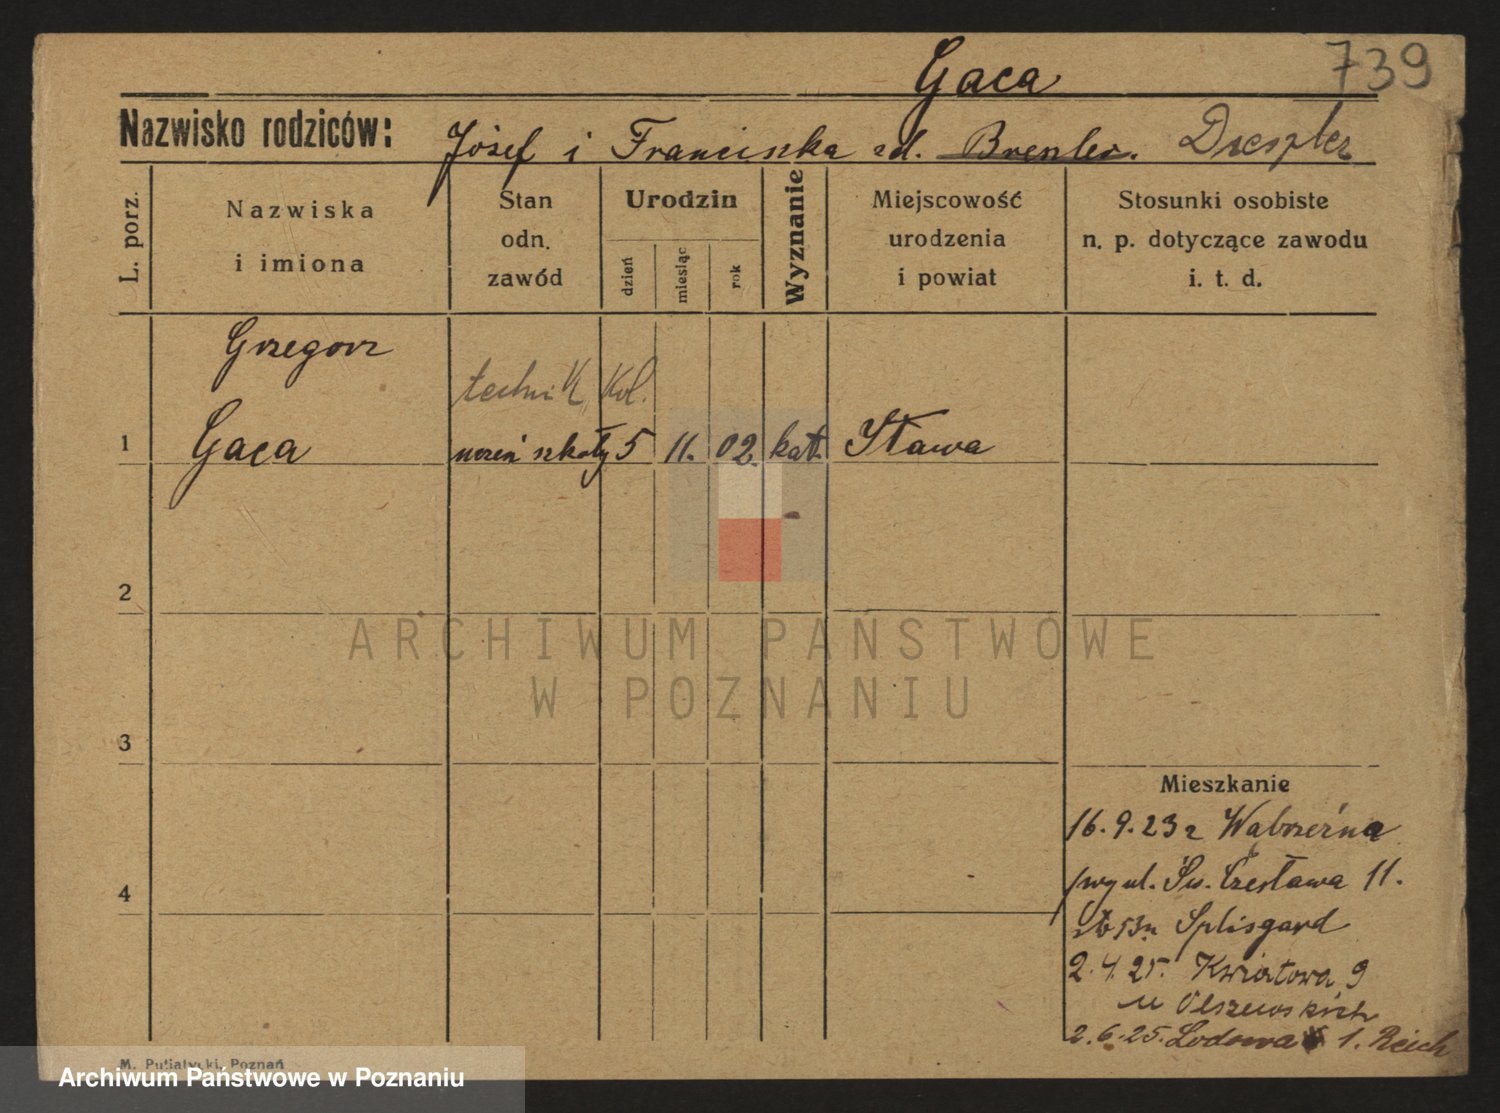 Gaca 739
Nazwisko rodziców: Józef i Franciszka zd. Dreszler
L. porz.
Nazwiska
i imiona
Stan
odn.
zawód
Urodzin
dzień
miesiąc
rok
Wyznanie
Miejscowość
urodzenia
i powiat
Stosunki osobiste
n. p. dotyczące zawodu
i. t. d.
Grzegorz
technik Kol.
1 Gaca uczeń szkoły 5 11. 02. kat. Sława
2
ARCHIWUM PAŃSTWOWE
W POZNANIU
3
Mieszkanie
16.9.23 z Wąbrzeźna
ul. Św. Czesława 11.
4
Splisgard
2.4.25. Kwiatowa 9
u Olszewskich
2.6.25. Lodowa 1. Reich
M. Putiatycki, Poznań
Archiwum Państwowe w Poznaniu